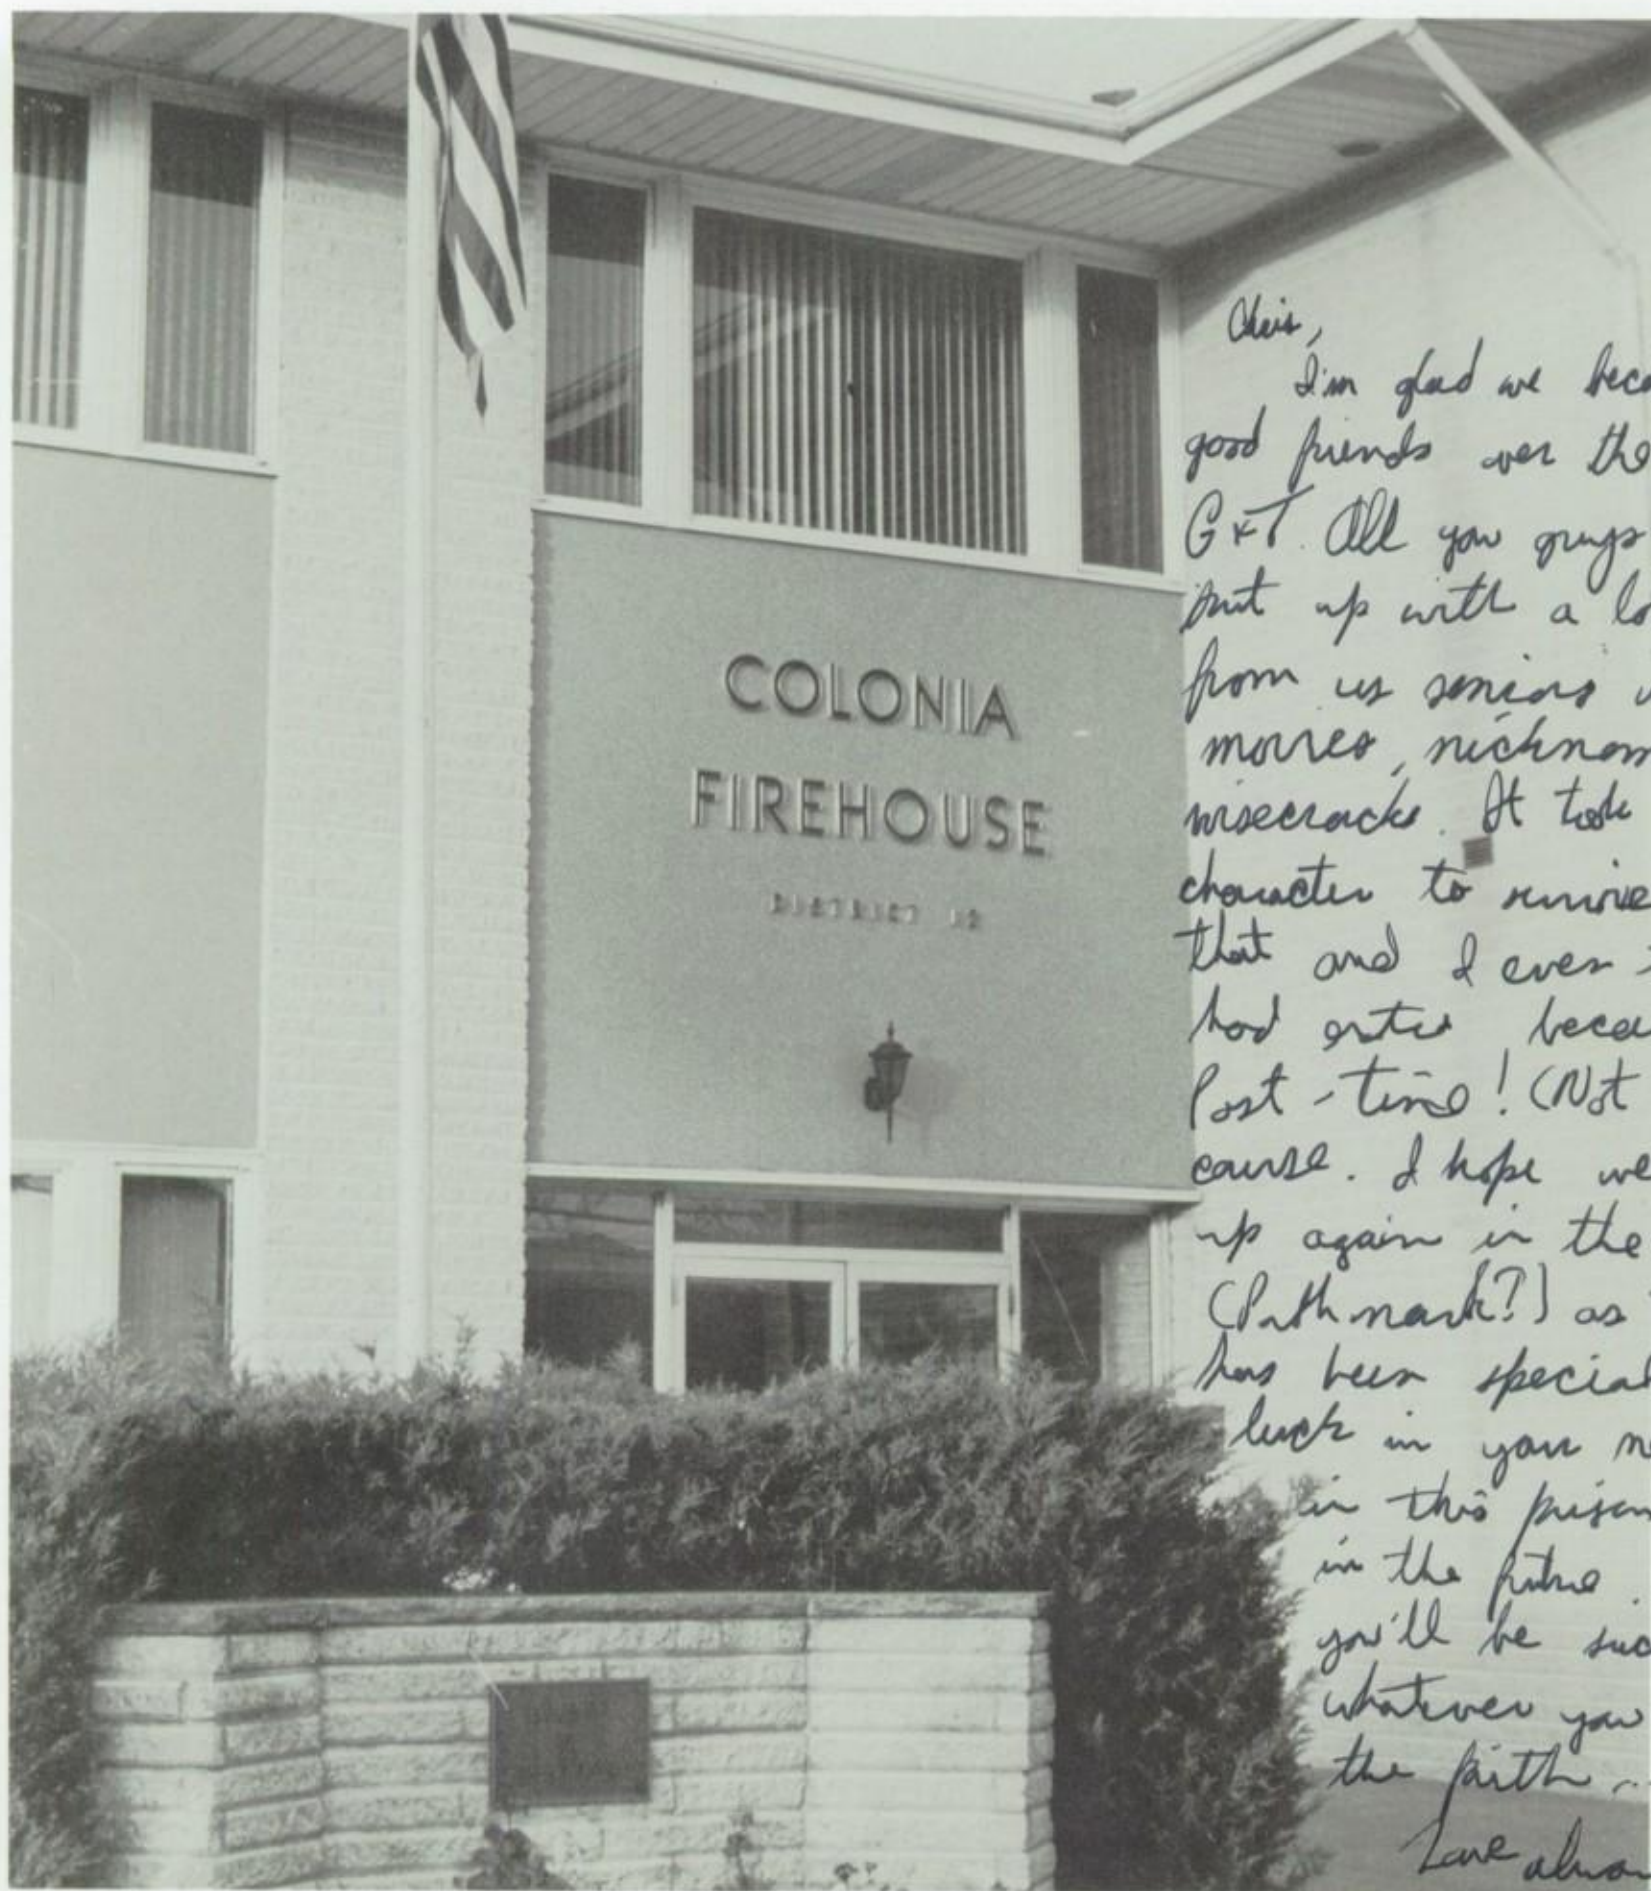 COLONIA
FIREHOUSE
DISTRICT 12
Chris,
I'm glad we beca
good friends over the
G+T. All you guys
put up with a lo
from us seniors w
movies, nicknam
wisecracks. It took
character to survive
that and I even
had enter becau
Post-time! (Not
course. I hope we
up again in the
(Pathmark?) as
has been special
luck in your n
in this prison
in the future.
you'll be suc
whatever you
the faith.
Love alwa